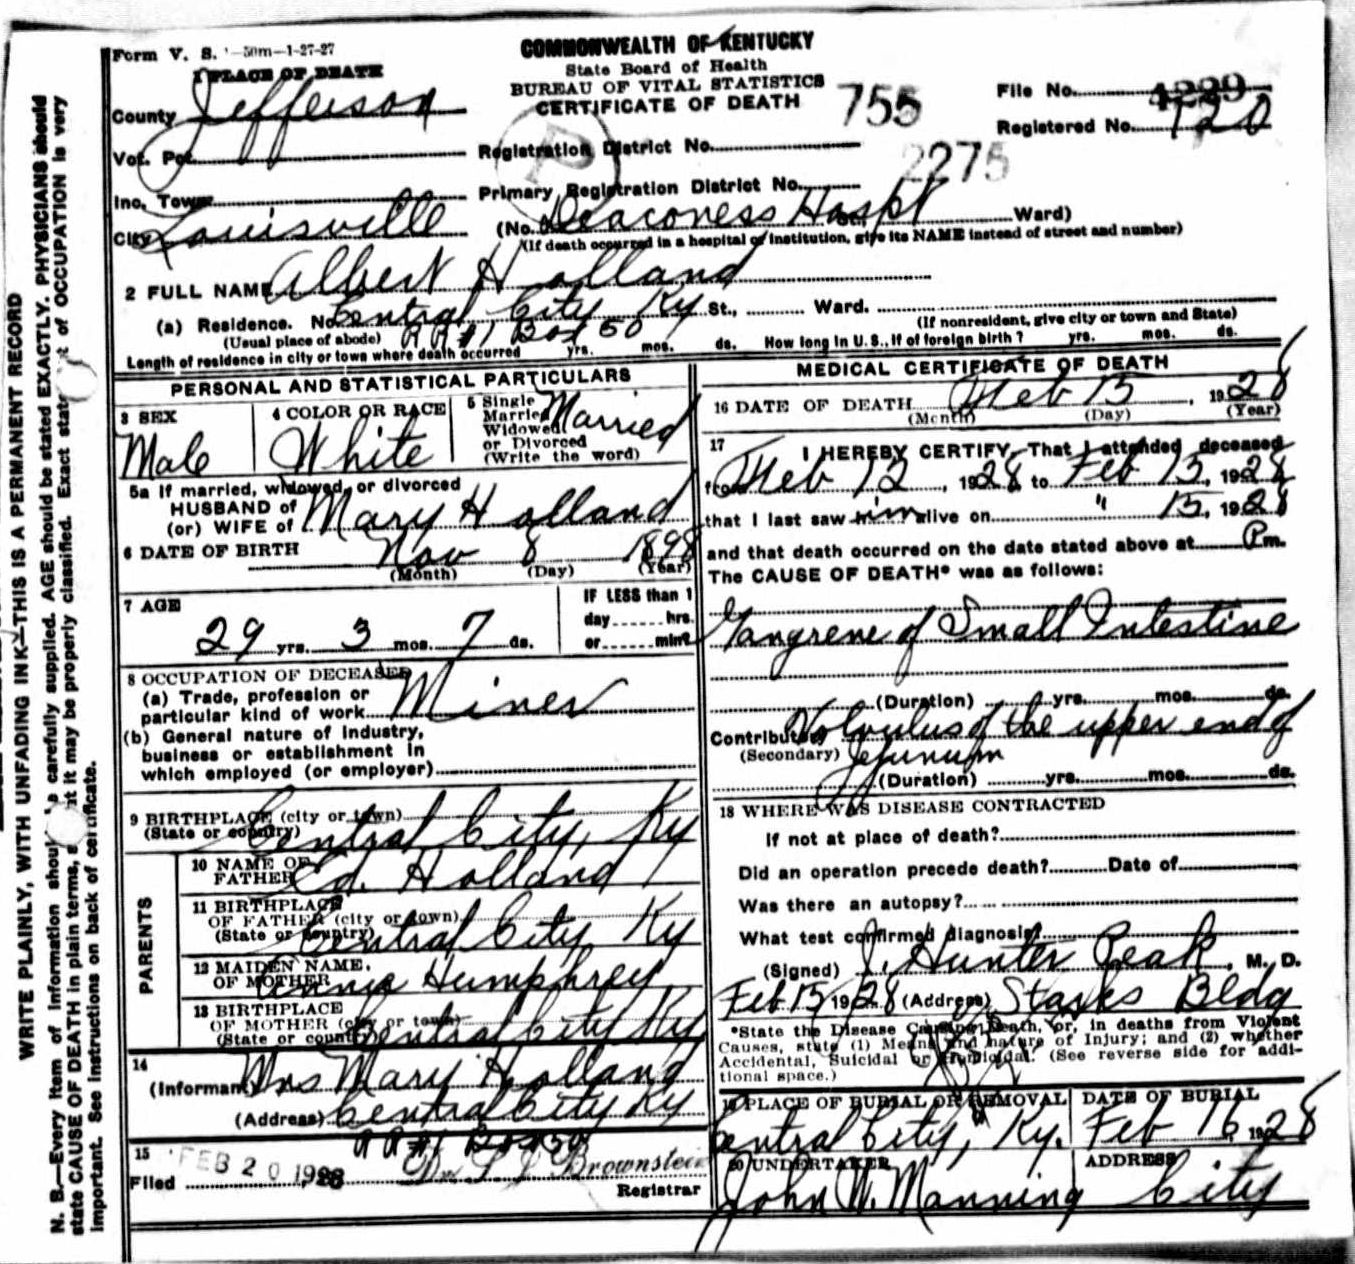 Form V. S. 1-50m-1-27-27
COMMONWEALTH OF KENTUCKY
State Board of Health
BUREAU OF VITAL STATISTICS
CERTIFICATE OF DEATH
755
2275
File No. 4229
Registered No. 120
1 PLACE OF DEATH
County Jefferson
Vot. Pct.
Registration District No.
Inc. Town
Primary Registration District No.
City Louisville (No. Deaconess Hospt St., Ward)
(If death occurred in a hospital or institution, give its NAME instead of street and number)
2 FULL NAME Albert Holland
(a) Residence. No. Central City Ky St., Ward.
(Usual place of abode) RR #1 Box 50 (If nonresident, give city or town and State)
Length of residence in city or town where death occurred yrs. mos. ds. How long in U. S., if of foreign birth? yrs. mos. ds.
PERSONAL AND STATISTICAL PARTICULARS
3 SEX Male
4 COLOR OR RACE White
5 Single Married Widowed or Divorced (Write the word) Married
5a If married, widowed, or divorced
HUSBAND of
(or) WIFE of Mary Holland
6 DATE OF BIRTH Nov 8 1898
(Month) (Day) (Year)
7 AGE
29 yrs. 3 mos. 7 ds.
IF LESS than 1
day hrs.
or min?
8 OCCUPATION OF DECEASED
(a) Trade, profession or
particular kind of work Miner
(b) General nature of industry,
business or establishment in
which employed (or employer)
9 BIRTHPLACE (city or town)
(State or country) Central City, Ky
PARENTS
10 NAME OF FATHER Ed. Holland
11 BIRTHPLACE
OF FATHER (city or town)
(State or country) Central City Ky
12 MAIDEN NAME.
OF MOTHER Annie Humphrey
13 BIRTHPLACE
OF MOTHER (city or town)
(State or country) Central City Ky
14
(Informant) Mrs Mary Holland
(Address) Central City Ky
RR #1 Box 50
15
Filed FEB 20 1928 Brownstein
Registrar
MEDICAL CERTIFICATE OF DEATH
16 DATE OF DEATH Feb 15, 1928
(Month) (Day) (Year)
17 I HEREBY CERTIFY, That I attended deceased
from Feb 12, 1928, to Feb 15, 1928
that I last saw him alive on " 15, 1928
and that death occurred on the date stated above at P m.
The CAUSE OF DEATH* was as follows:
Gangrene of Small Intestine
(Duration) yrs. mos. ds.
Contributory Volvulus of the upper end of
(Secondary) Jejunum
(Duration) yrs. mos. ds.
18 WHERE WAS DISEASE CONTRACTED
If not at place of death?
Did an operation precede death? Date of
Was there an autopsy?
What test confirmed diagnosis?
(Signed) J. Hunter Peak, M. D.
Feb 15 1928 (Address) Starks Bldg
*State the Disease Causing Death, or, in deaths from Violent
Causes, state (1) Means and nature of Injury; and (2) whether
Accidental, Suicidal or Homicidal. (See reverse side for addi-
tional space.)
19 PLACE OF BURIAL OR REMOVAL
Central City, Ky.
DATE OF BURIAL
Feb 16 1928
20 UNDERTAKER
John W. Manning
ADDRESS
City
WRITE PLAINLY, WITH UNFADING INK—THIS IS A PERMANENT RECORD
N. B.—Every item of information should be carefully supplied. AGE should be stated EXACTLY. PHYSICIANS should
state CAUSE OF DEATH in plain terms, so that it may be properly classified. Exact statement of OCCUPATION is very
important. See instructions on back of certificate.